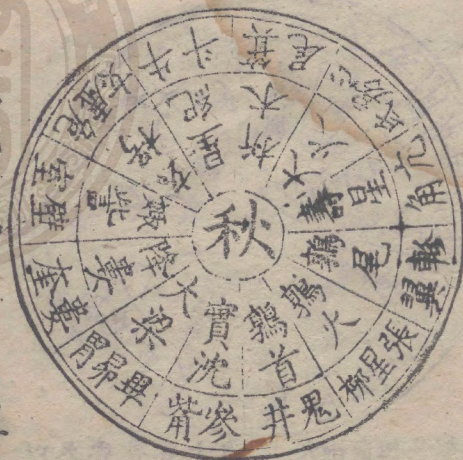 秋
壽星
大火
析木
星紀
玄枵
娵訾
降婁
大梁
實沈
鶉首
鶉火
鶉尾
角亢
氐房心
尾箕
斗牛
女虛危
室壁
奎婁
胃昴畢
觜參
井鬼
柳星張
翼軫